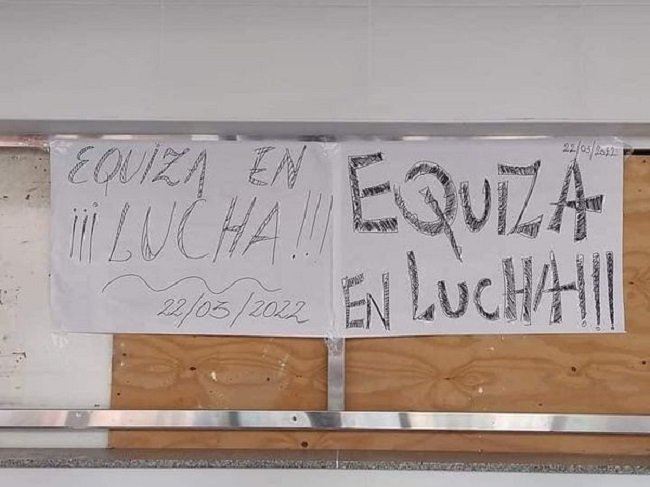 EQUIZA EN
¡¡¡LUCHA!!!
22/03/2022
22/03/2022
EQUIZA
EN LUCHA!!!